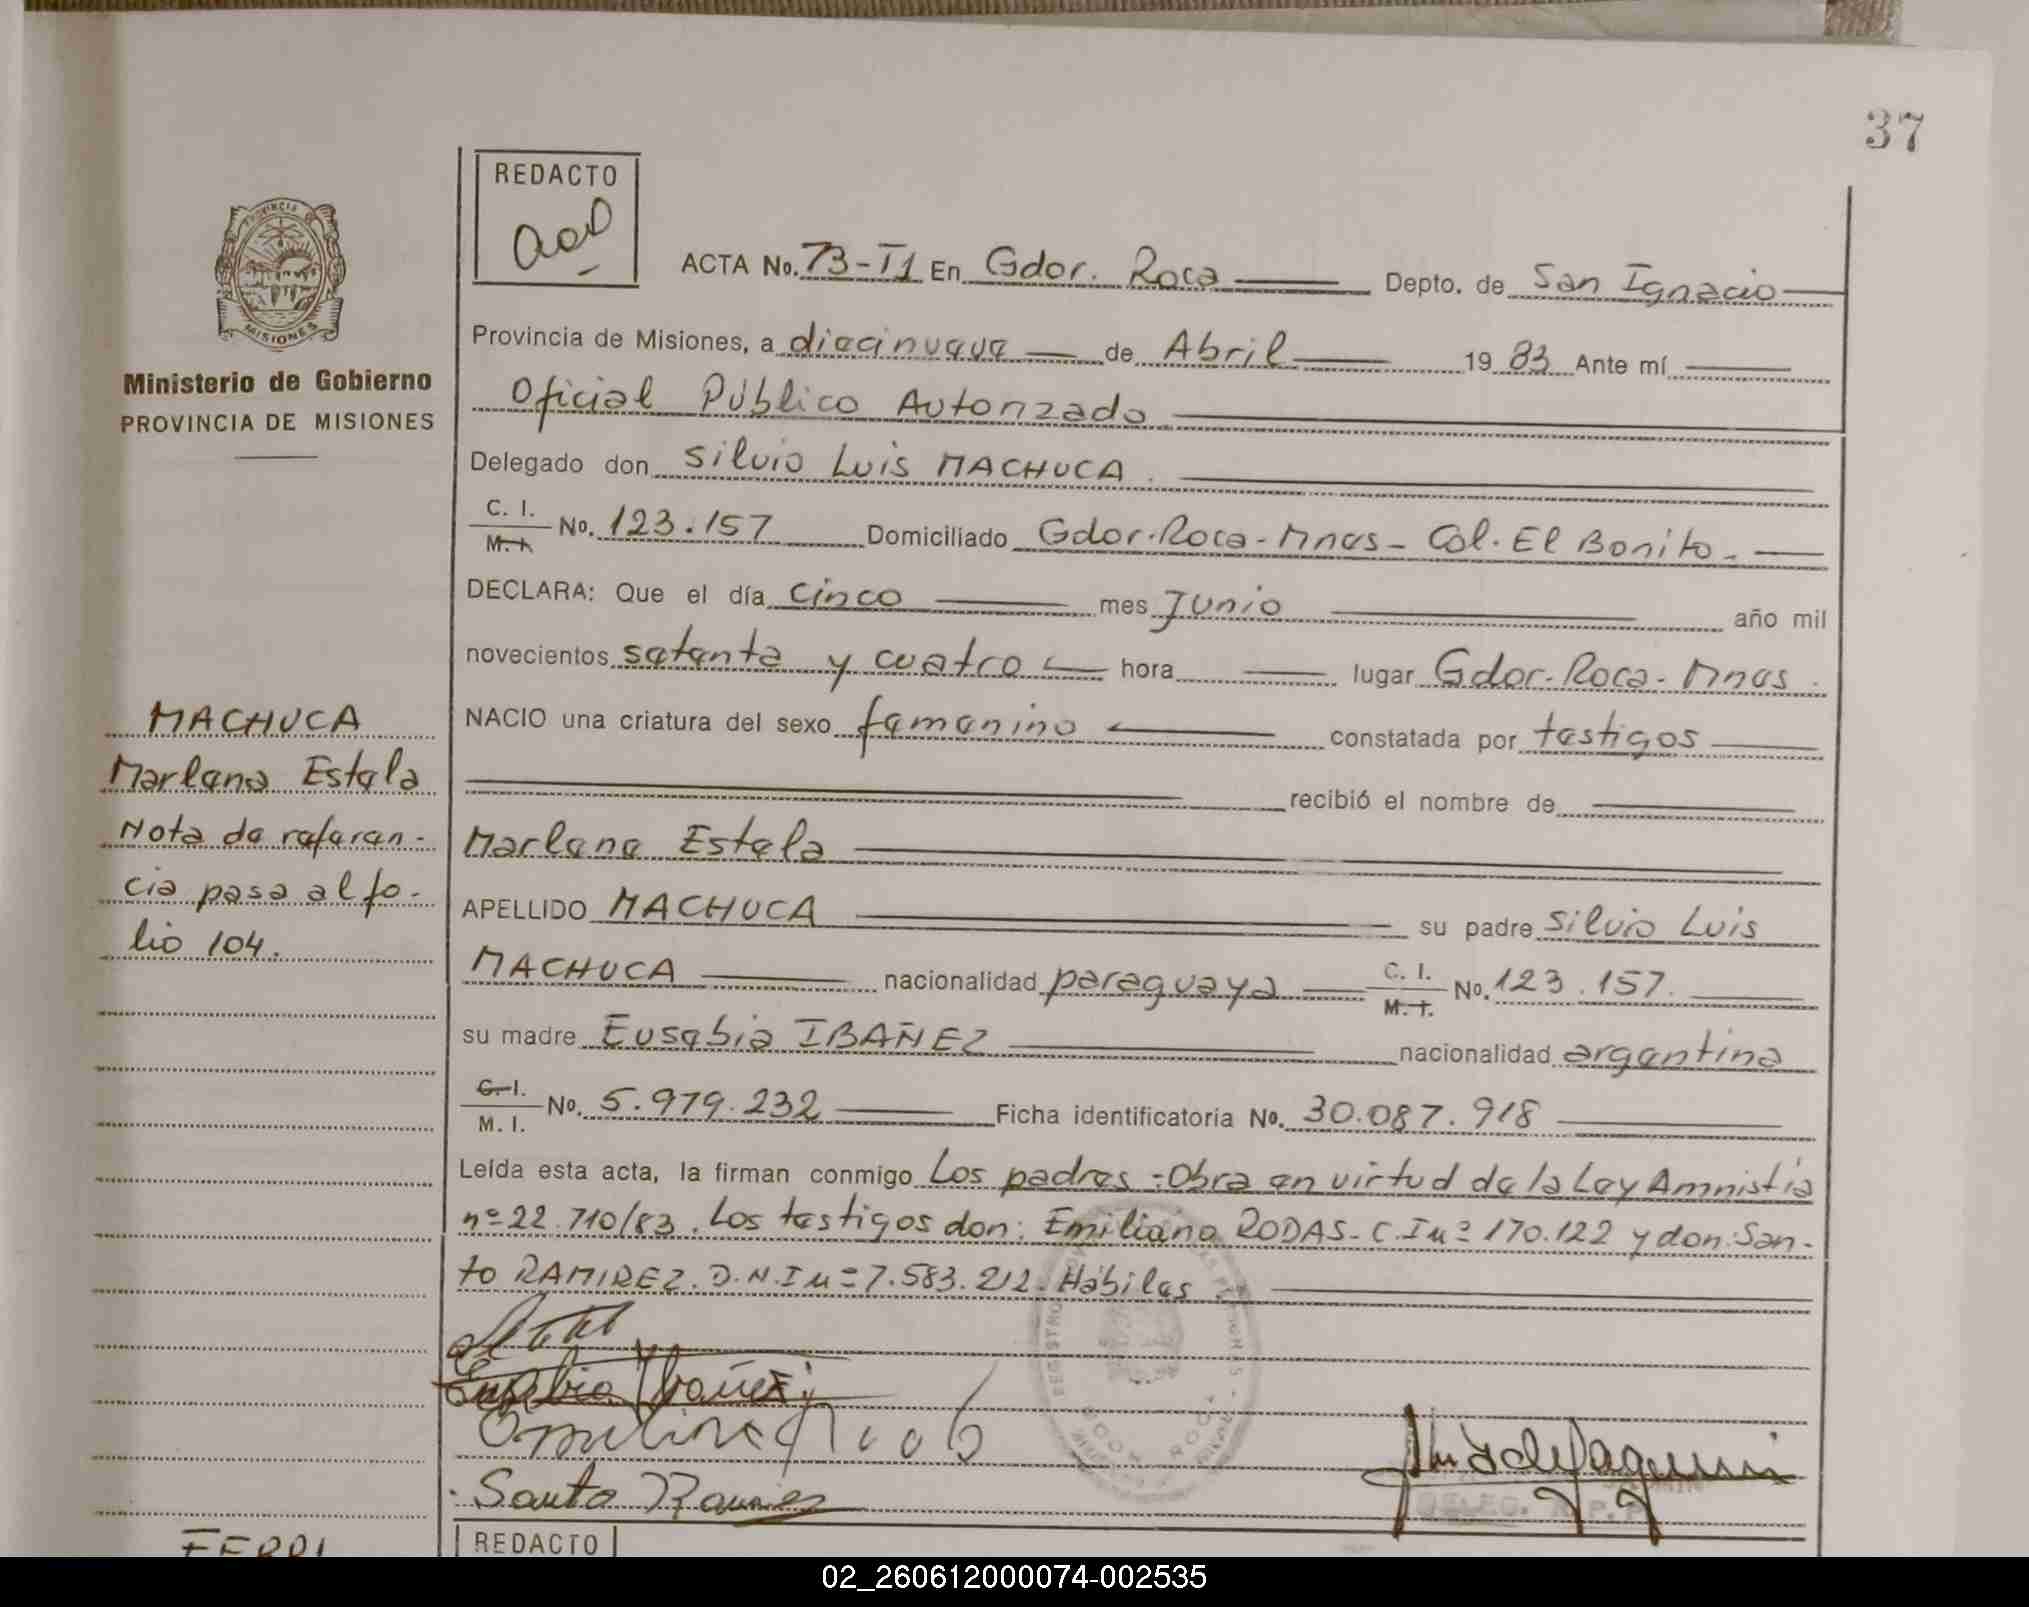 37
REDACTO
PROVINCIA
MISIONES
ACTA No. 73-T1 En Gdor. Roca Depto. de San Ignacio
Provincia de Misiones, a diecinueve de Abril 1983 Ante mí
Ministerio de Gobierno
PROVINCIA DE MISIONES
Oficial Público Autorizado
Delegado don Silvio Luis MACHUCA.
C. I.
M. I. No. 123.157 Domiciliado Gdor. Roca - Mnes - Col. El Bonito -
DECLARA: Que el día cinco mes Junio año mil
novecientos setenta y cuatro hora lugar Gdor. Roca - Mnes.
NACIO una criatura del sexo femenino constatada por testigos
recibió el nombre de
Marlene Estela
APELLIDO MACHUCA su padre Silvio Luis
MACHUCA nacionalidad paraguaya C. I. M. I. No. 123.157.
su madre Eusebia IBAÑEZ nacionalidad argentina
C. I.
M. I. No. 5.979.232 Ficha identificatoria No. 30.087.918
Leída esta acta, la firman conmigo Los padres - Obra en virtud de la Ley Amnistia
nº 22.710/83. Los testigos don: Emiliano RODAS - C.I nº 170.122 y don: San-
to RAMIREZ. D.N.I nº 7.583.212. Hábiles.
MACHUCA
Marlene Estela
Nota de referen-
cia pasa al fo-
lio 104.
Eusebia Ibañez
Santo Ramirez
DELEG. R. P. P.
REDACTO
FERRI
02_260612000074-002535